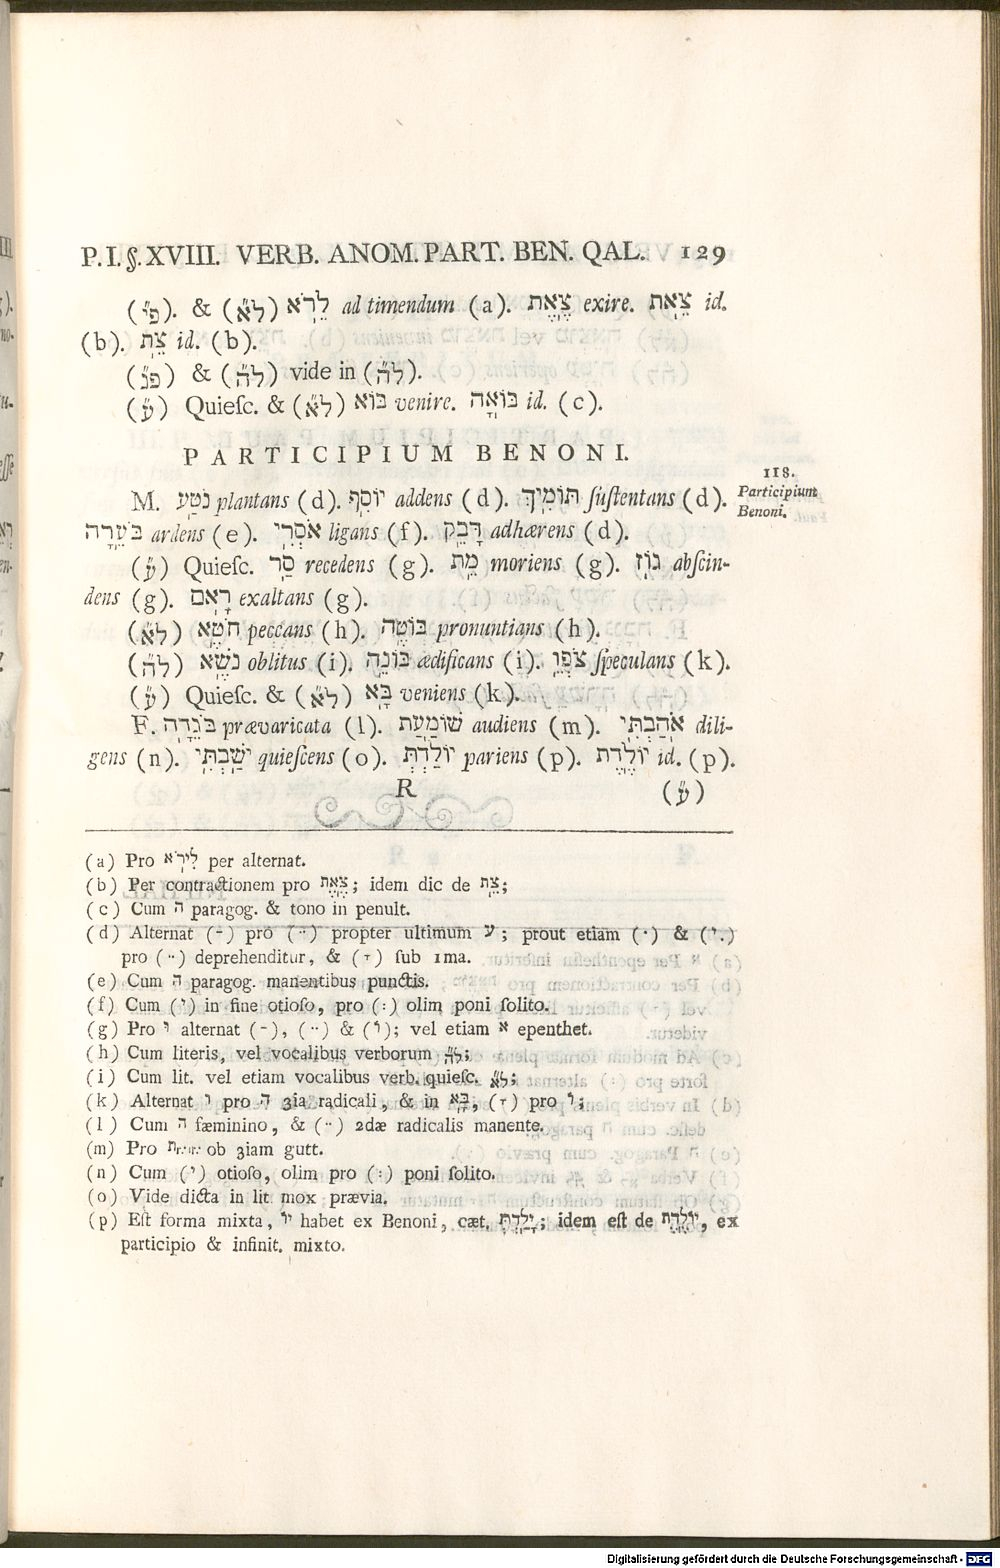 P. I. §. XVIII. VERB. ANOM. PART. BEN. QAL. 129
(פ״י). & (ל״א) לֵרֹא ad timendum (a). צֵאֶת exire. צֵאת id.
(b). צֵת id. (b).
(פ״נ) & (ל״ה) vide in (ל״ה).
(ע״ו) Quieſc. & (ל״א) בּוֹא venire. בּוֹאָה id. (c).
PARTICIPIUM BENONI.
118.
Participium
Benoni.
M. נֹטַע plantans (d). יוֹסִף addens (d). תּוֹמִיךְ ſuſtentans (d).
בֹּעֵרָה ardens (e). אֹסְרִי ligans (f). דָּבֵק adhærens (d).
(ע״ו) Quieſc. סַר recedens (g). מֵת moriens (g). גוֹז abſcin-
dens (g). רָאם exaltans (g).
(ל״א) חֹטֶא peccans (h). בּוֹטֶה pronuntians (h).
(ל״ה) נֹשֶׁא oblitus (i). בּוֹנֶה ædificans (i). צֹפֶו ſpeculans (k).
(ע״ו) Quieſc. & (ל״א) בָּא veniens (k).
F. בֹּגֵדָה prævaricata (l). שׁוֹמַעַת audiens (m). אֹהַבְתִּי dili-
gens (n). יֹשַׁבְתִּי quieſcens (o). יוֹלַדְתְּ pariens (p). יוֹלֶדֶת id. (p).
R (ע״ו)
(a) Pro לִירֹא per alternat.
(b) Per contractionem pro צֵאֶת; idem dic de צֵת;
(c) Cum ה paragog. & tono in penult.
(d) Alternat (-) pro (··) propter ultimum ע; prout etiam (·) & (י.)
pro (··) deprehenditur, & (ָ) ſub 1ma.
(e) Cum ה paragog. manentibus punctis.
(f) Cum (י) in fine otioſo, pro (:) olim poni ſolito.
(g) Pro ו alternat (-), (··) & (וֹ); vel etiam א epenthet.
(h) Cum literis, vel vocalibus verborum ל״ה;
(i) Cum lit. vel etiam vocalibus verb. quieſc. ל״א;
(k) Alternat ו pro ה 3ia radicali, & in בָּא, (ָ) pro וֹ;
(l) Cum ה fæminino, & (··) 2dæ radicalis manente.
(m) Pro ת ob 3iam gutt.
(n) Cum (י) otioſo, olim pro (:) poni ſolito.
(o) Vide dicta in lit mox prævia.
(p) Eſt forma mixta, יוֹ habet ex Benoni, cæt. יָלַדְתְּ; idem eſt de יוֹלֶדֶת, ex
participio & infinit. mixto.
Digitalisierung gefördert durch die Deutsche Forschungsgemeinschaft - DFG